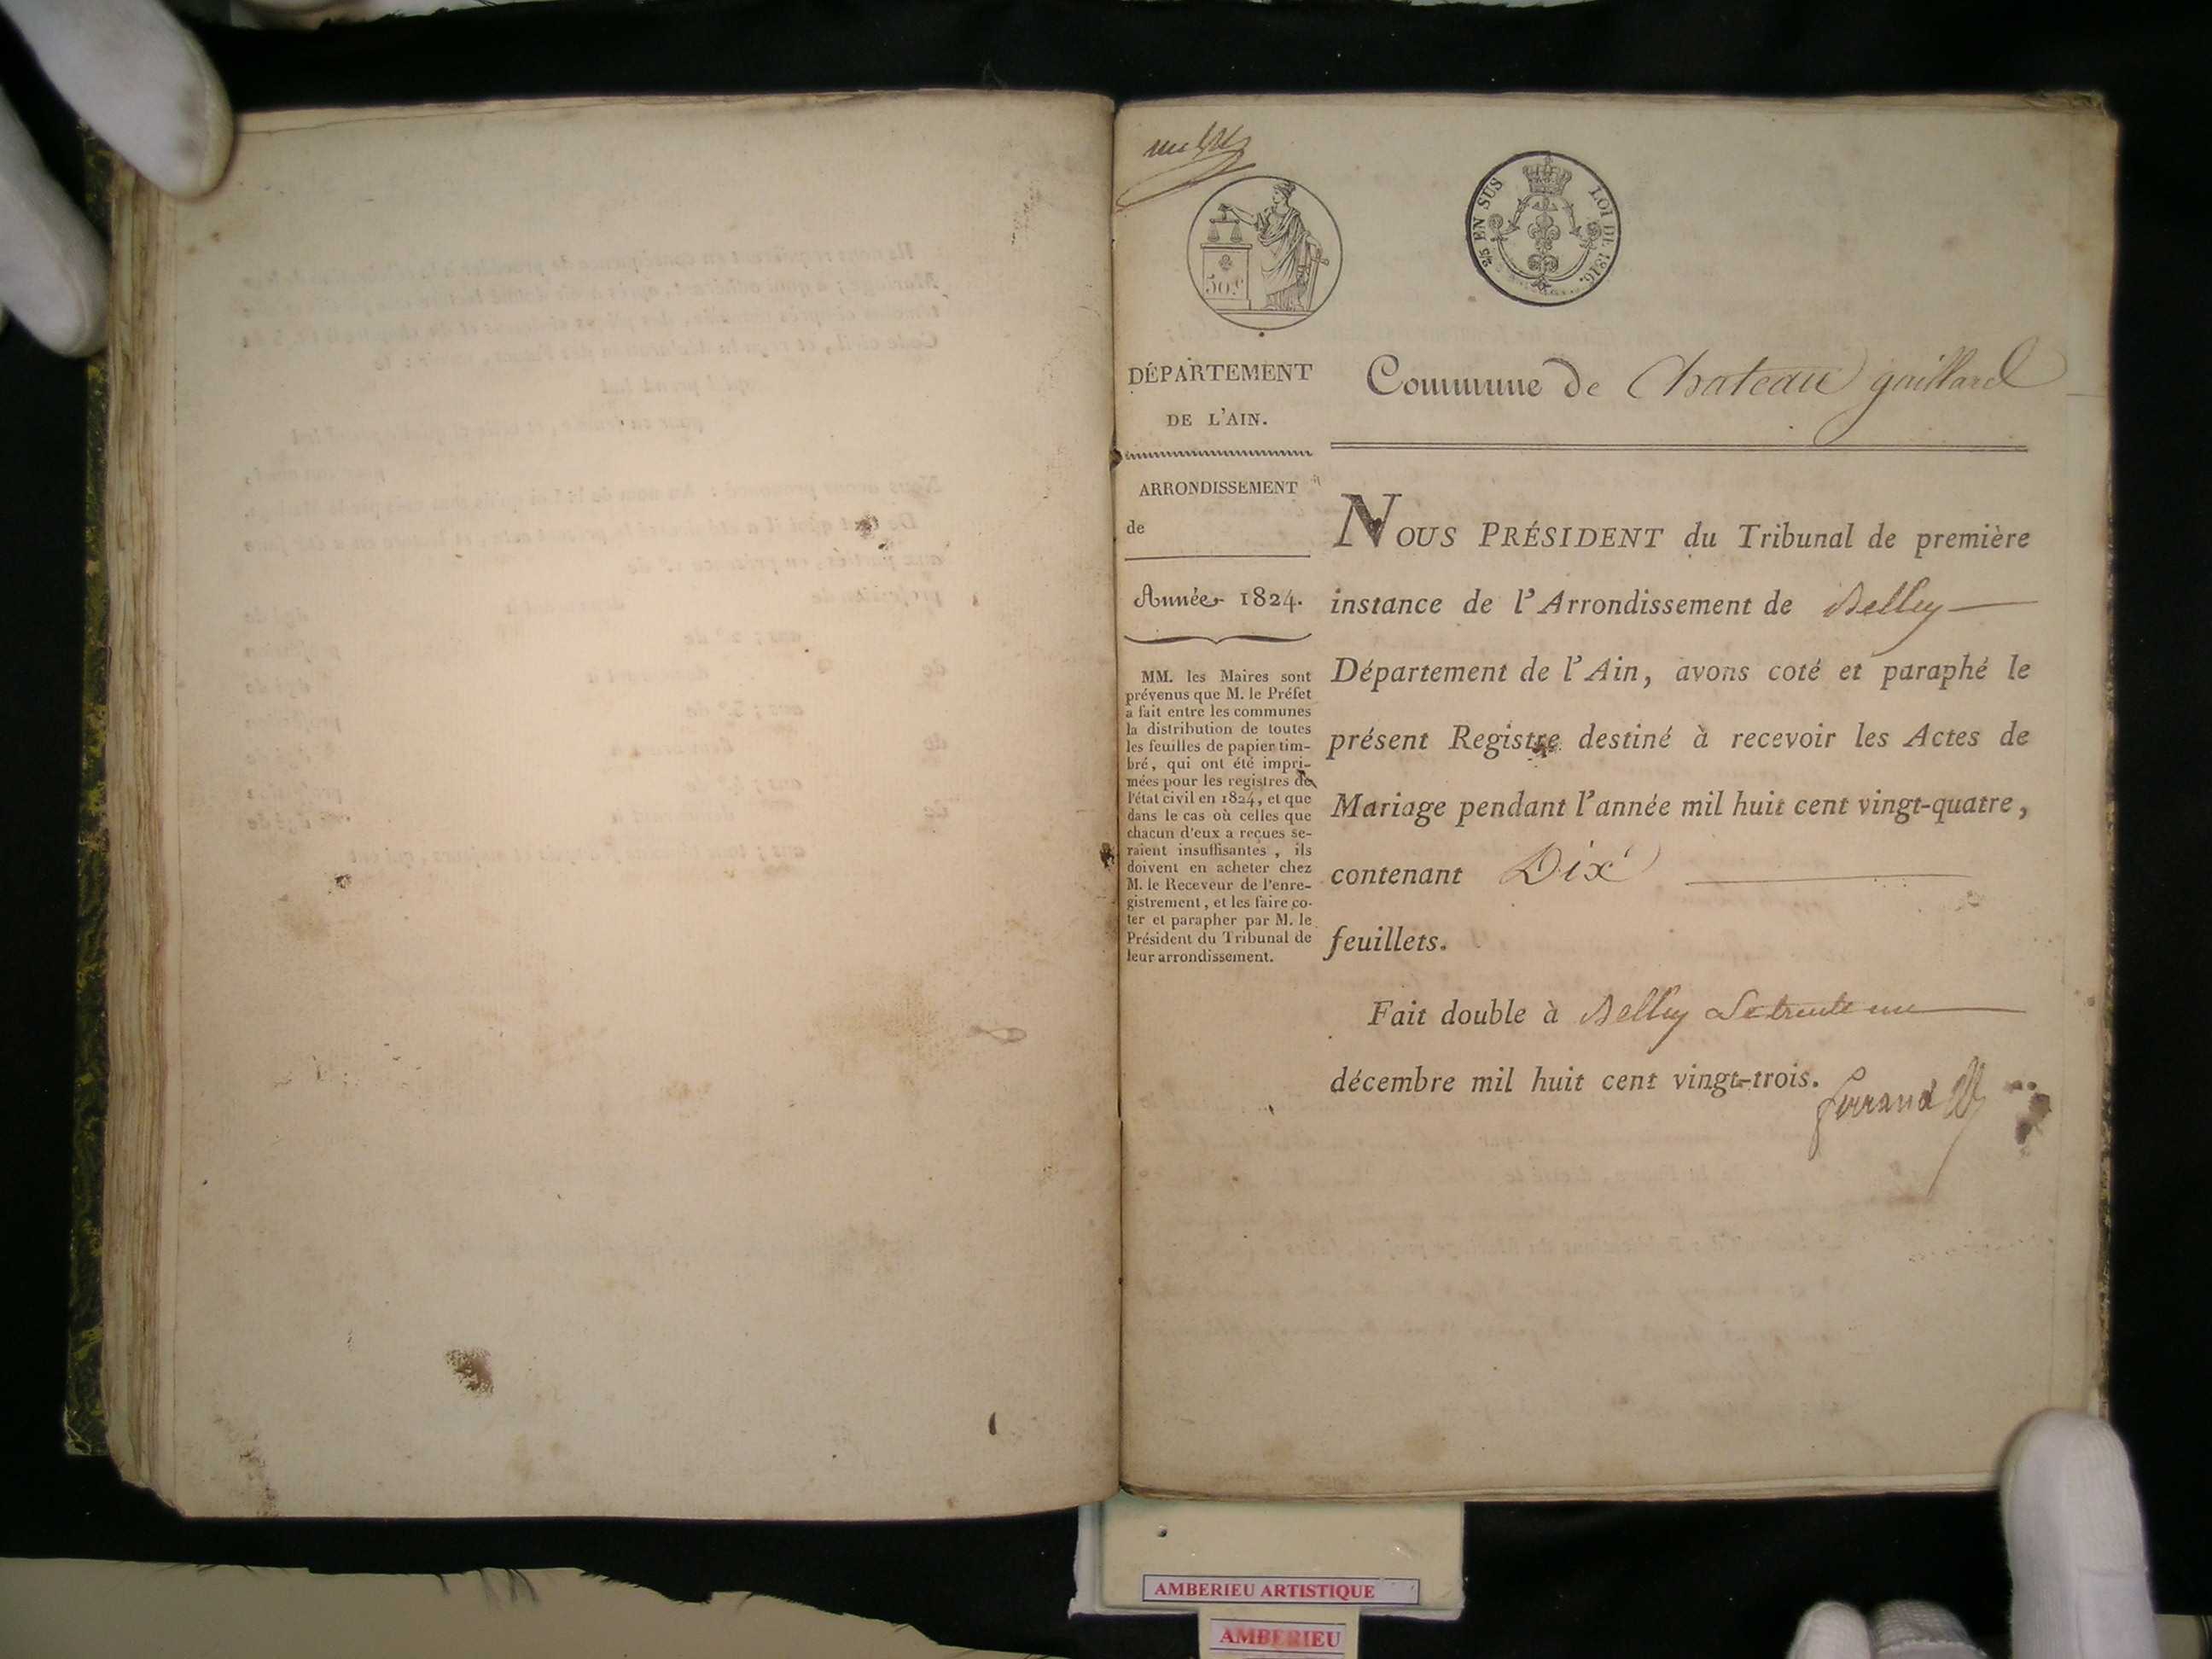 50.c
25c EN SUS LOI DE 1816.
DÉPARTEMENT
DE L'AIN.
ARRONDISSEMENT
de
Année 1824.
MM. les Maires sont
prévenus que M. le Préfet
a fait entre les communes
la distribution de toutes
les feuilles de papier tim-
bré, qui ont été impri-
mées pour les registres de
l'état civil en 1824, et que
dans le cas où celles que
chacun d'eux a reçues se-
raient insuffisantes, ils
doivent en acheter chez
M. le Receveur de l'enre-
gistrement, et les faire co-
ter et parapher par M. le
Président du Tribunal de
leur arrondissement.
Commune de Chateau gaillard
NOUS PRÉSIDENT du Tribunal de première
instance de l'Arrondissement de Belley
Département de l'Ain, avons coté et paraphé le
présent Registre destiné à recevoir les Actes de
Mariage pendant l'année mil huit cent vingt-quatre,
contenant Dix
feuillets.
Fait double à Belley Le trente un
décembre mil huit cent vingt-trois.
AMBERIEU ARTISTIQUE
AMBERIEU